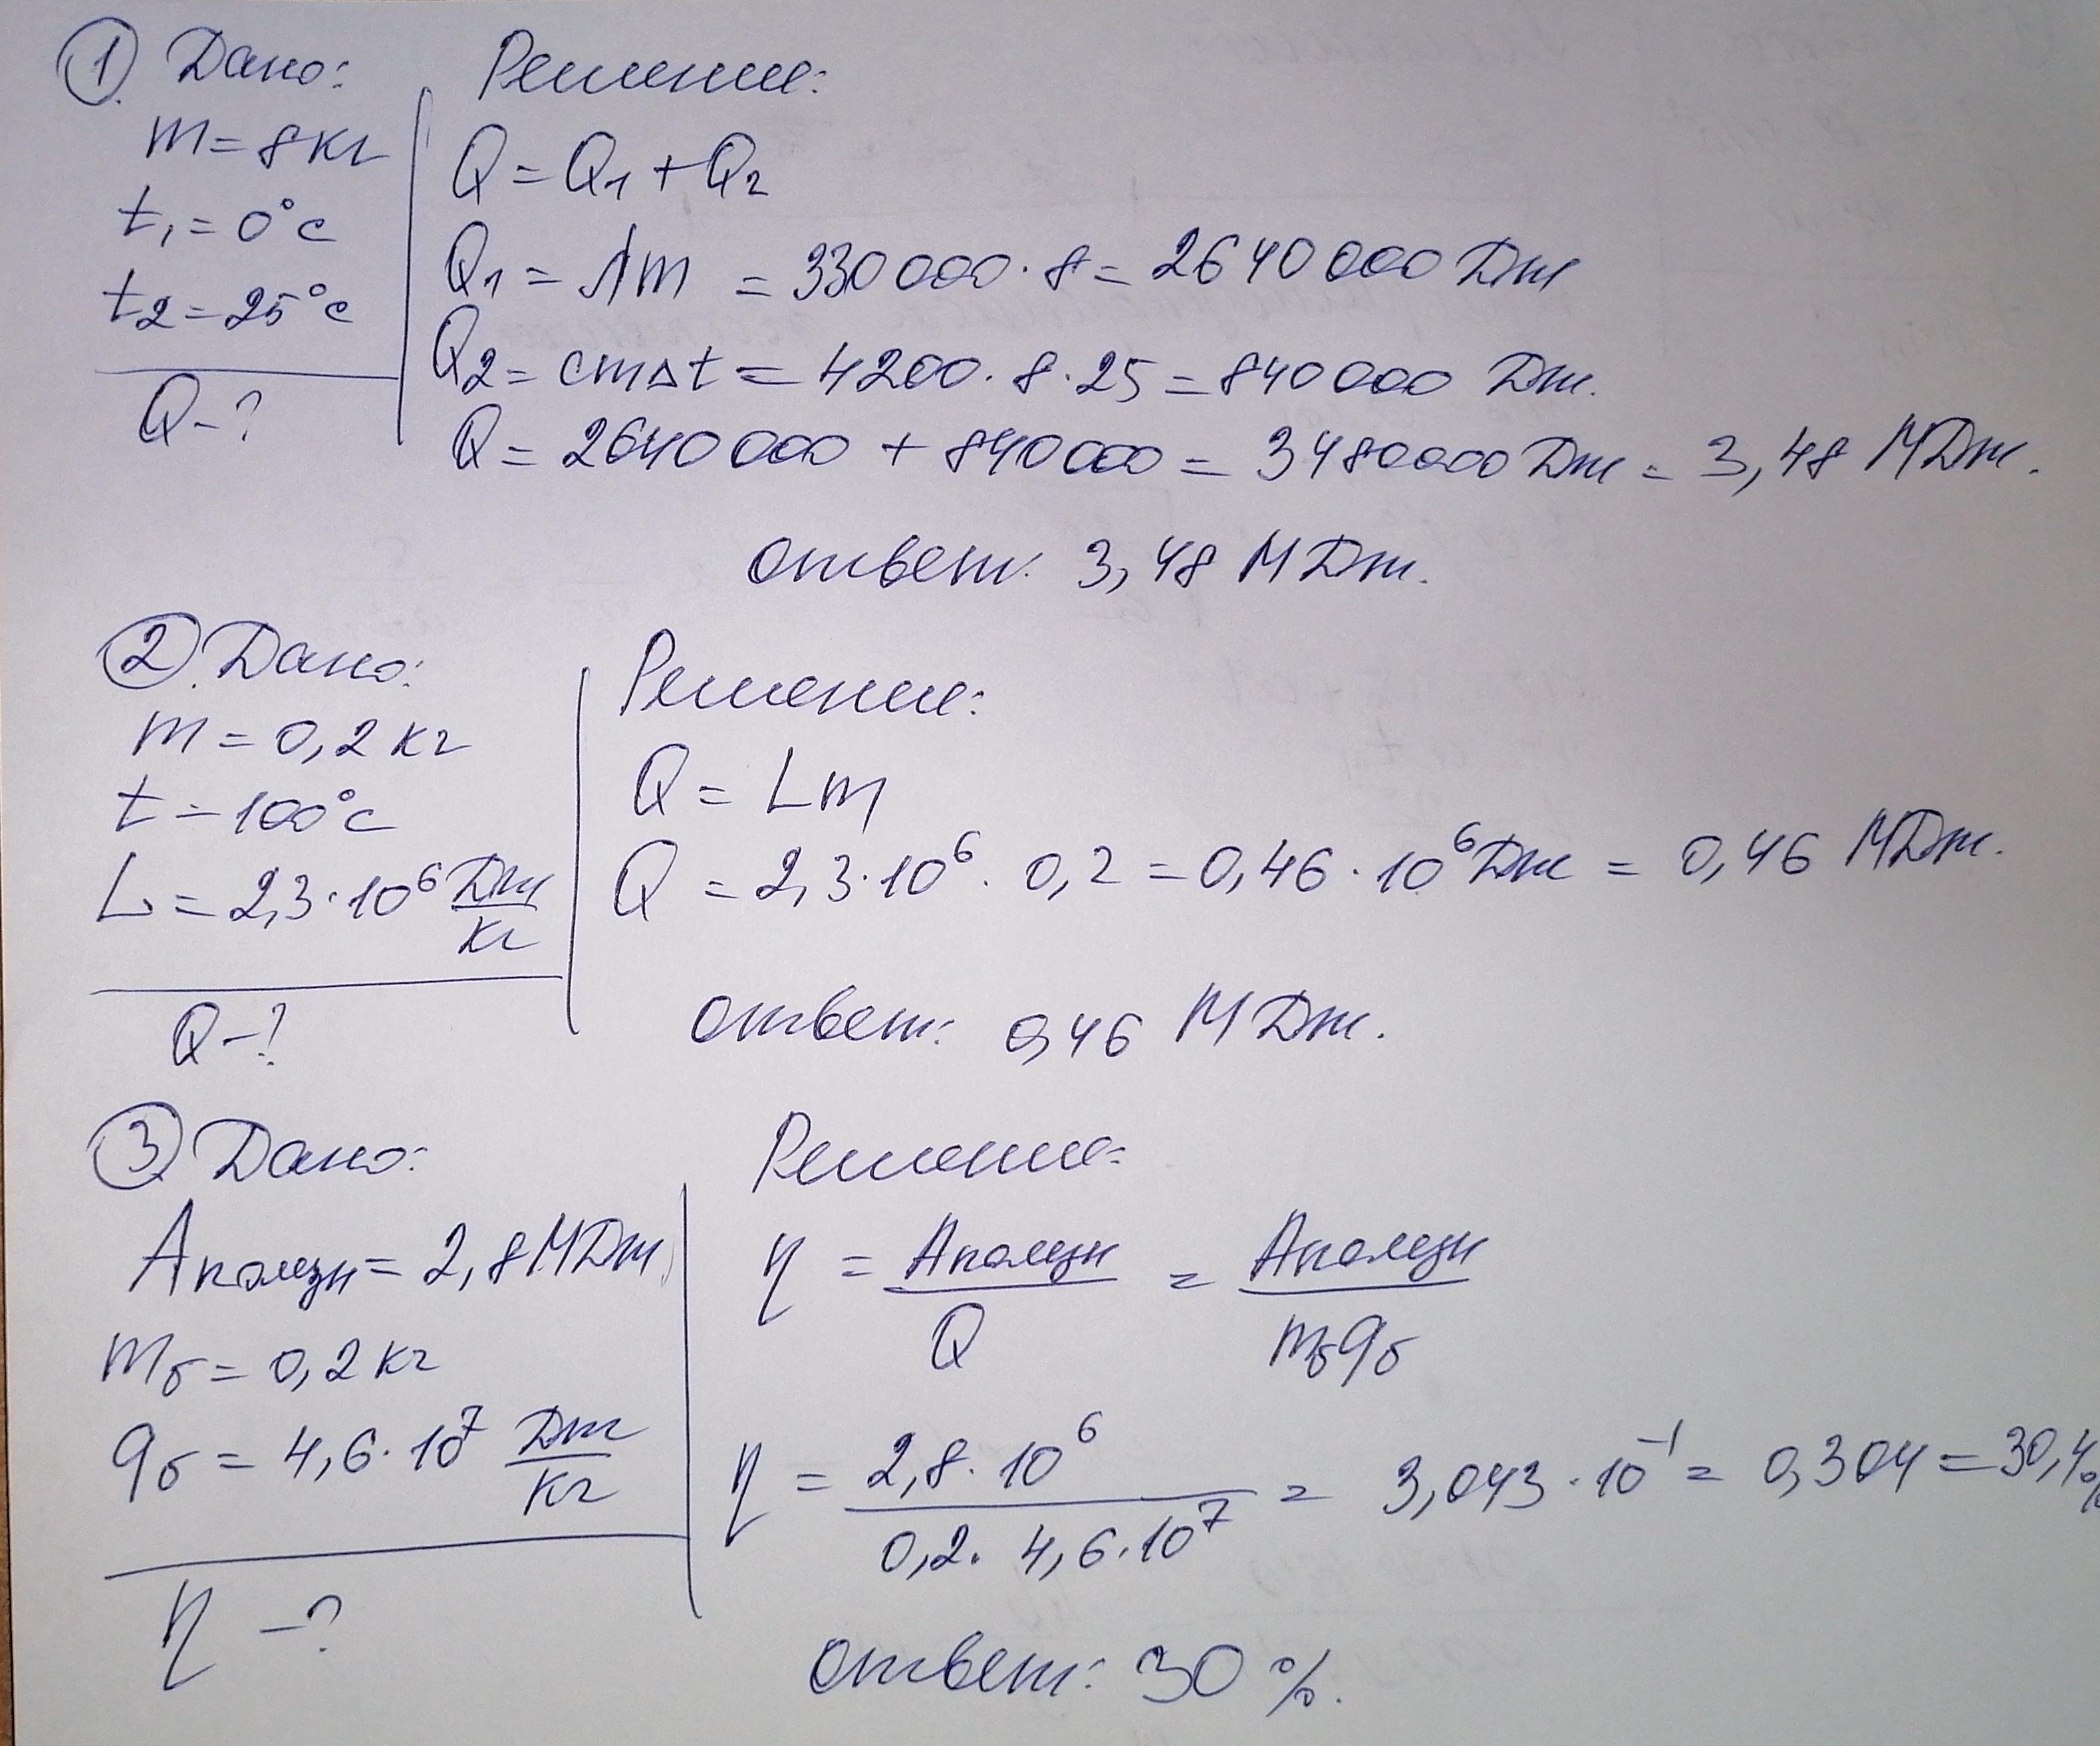 ① Дано:
m = 8 кг
t₁ = 0°С
t₂ = 25°С
Q - ?
Решение:
Q = Q₁ + Q₂
Q₁ = λm = 330 000 · 8 = 2640 000 Дж
Q₂ = cmΔt = 4200 · 8 · 25 = 840 000 Дж.
Q = 2640 000 + 840 000 = 3480000 Дж = 3,48 МДж.
ответ: 3,48 МДж.
② Дано:
m = 0,2 кг
t = 100°С
L = 2,3 · 10⁶ Дж/кг
Q - ?
Решение:
Q = Lm
Q = 2,3 · 10⁶ · 0,2 = 0,46 · 10⁶ Дж = 0,46 МДж.
ответ: 0,46 МДж.
③ Дано:
Aполезн = 2,8 МДж
mб = 0,2 кг
qб = 4,6 · 10⁷ Дж/кг
η - ?
Решение:
η = Aполезн/Q = Aполезн/mбqб
η = 2,8 · 10⁶/0,2 · 4,6 · 10⁷ = 3,043 · 10⁻¹ = 0,304 = 30,4%
ответ: 30 %.